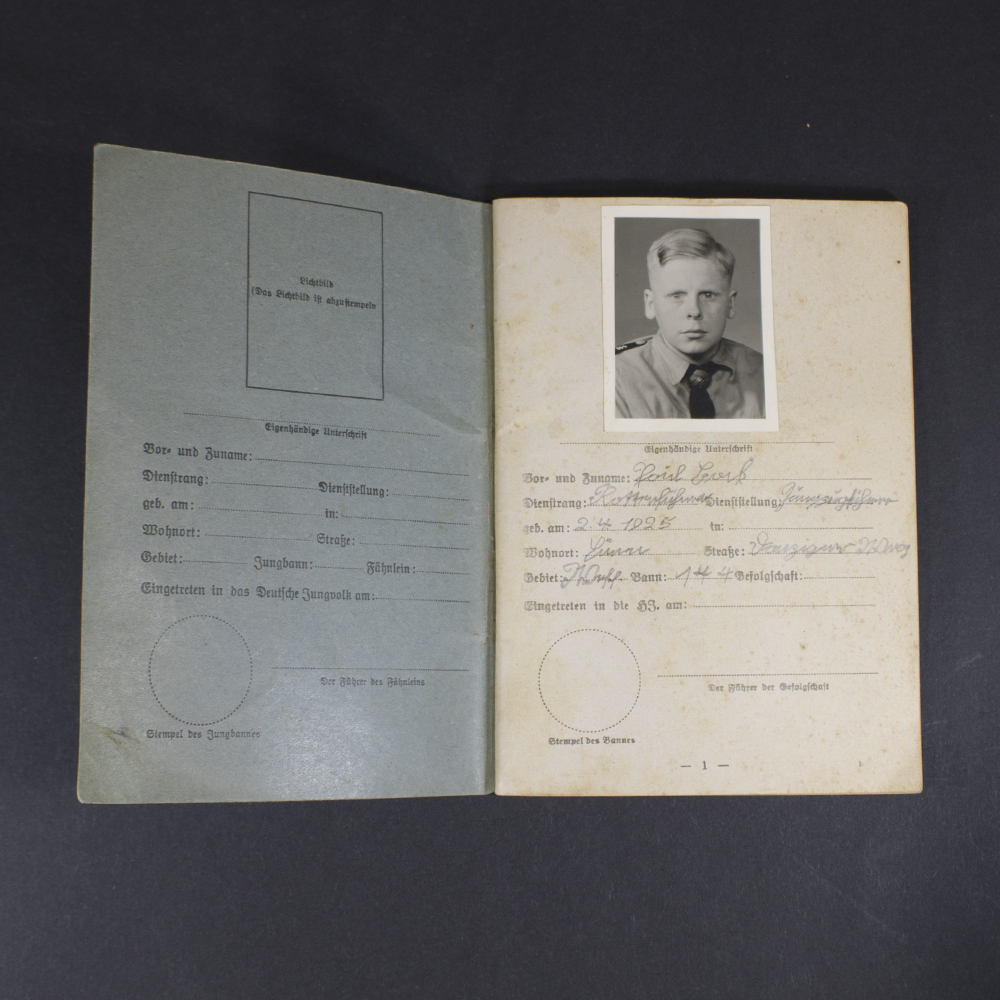 Lichtbild
(Das Lichtbild ist abzustempeln
Eigenhändige Unterschrift
Vor- und Zuname:
Dienstrang: Dienststellung:
geb. am: in:
Wohnort: Straße:
Gebiet: Jungbann: Fähnlein:
Eingetreten in das Deutsche Jungvolk am:
Der Führer des Fähnleins
Stempel des Jungbannes
Eigenhändige Unterschrift
Vor- und Zuname:
Dienstrang: Rottenführer Dienststellung:
geb. am: 2. 4. 1925 in:
Wohnort: Straße: Danziger Weg
Gebiet: Westf. Bann: 144 Gefolgschaft:
Eingetreten in die HJ. am:
Der Führer der Gefolgschaft
Stempel des Bannes
— 1 —